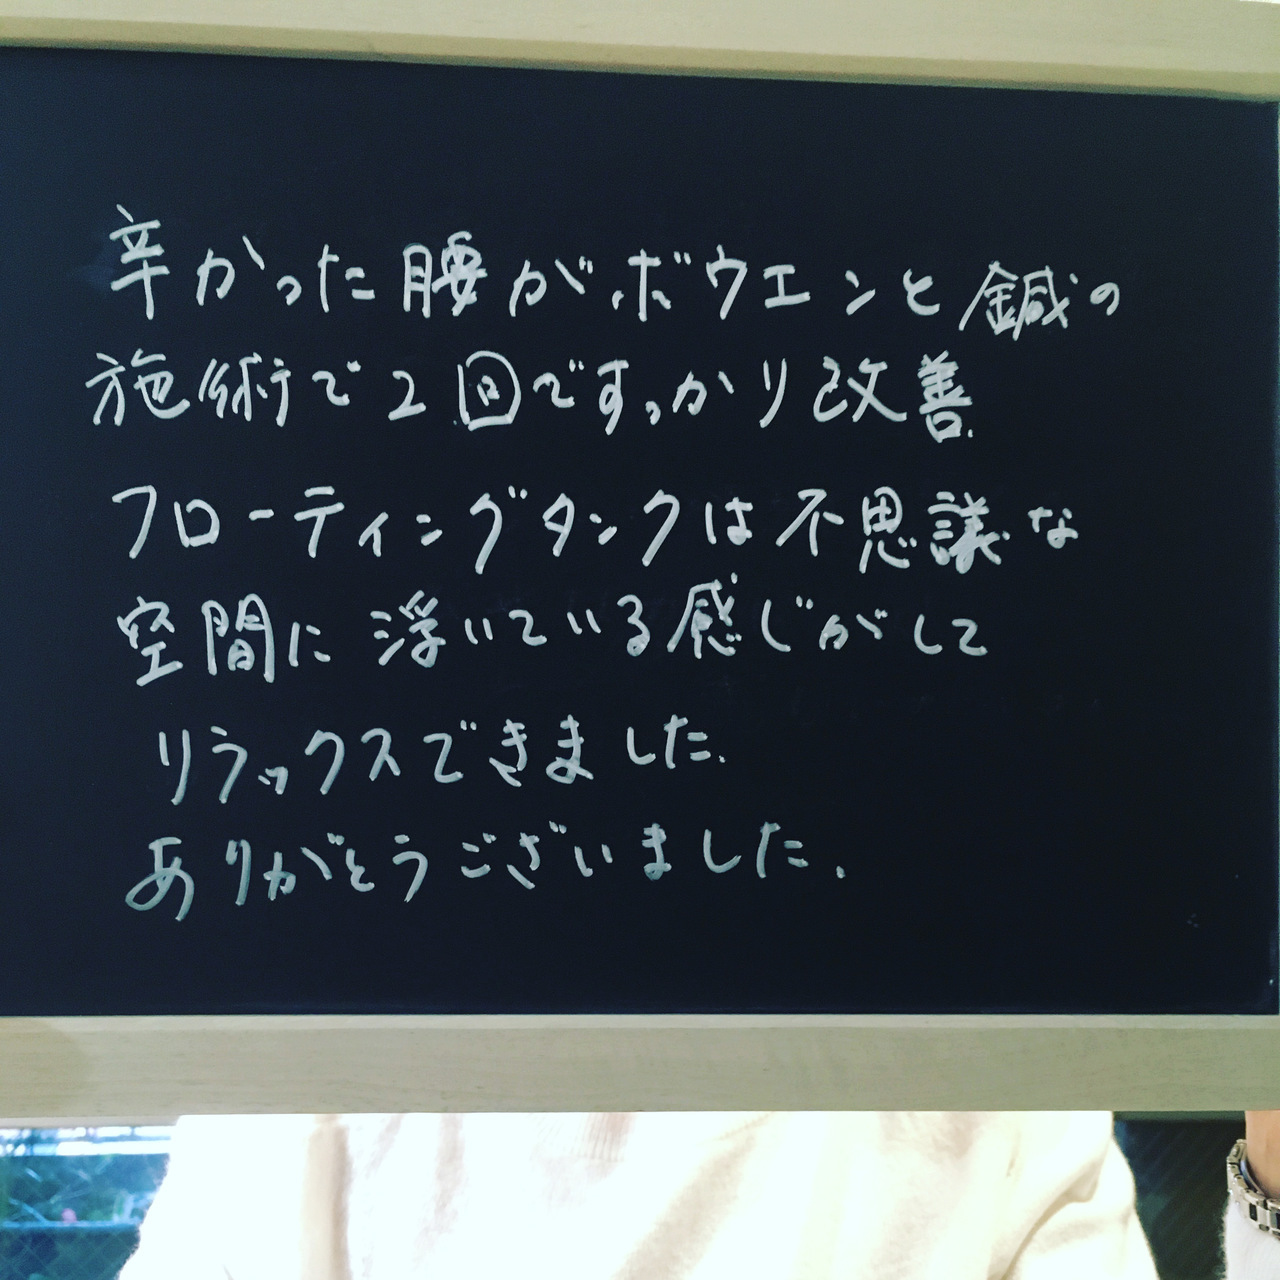 辛かった腰がボウエンと鍼の
施術で2回ですっかり改善.
フローティングタンクは不思議な
空間に浮いている感じがして
リラックスできました.
ありがとうございました.